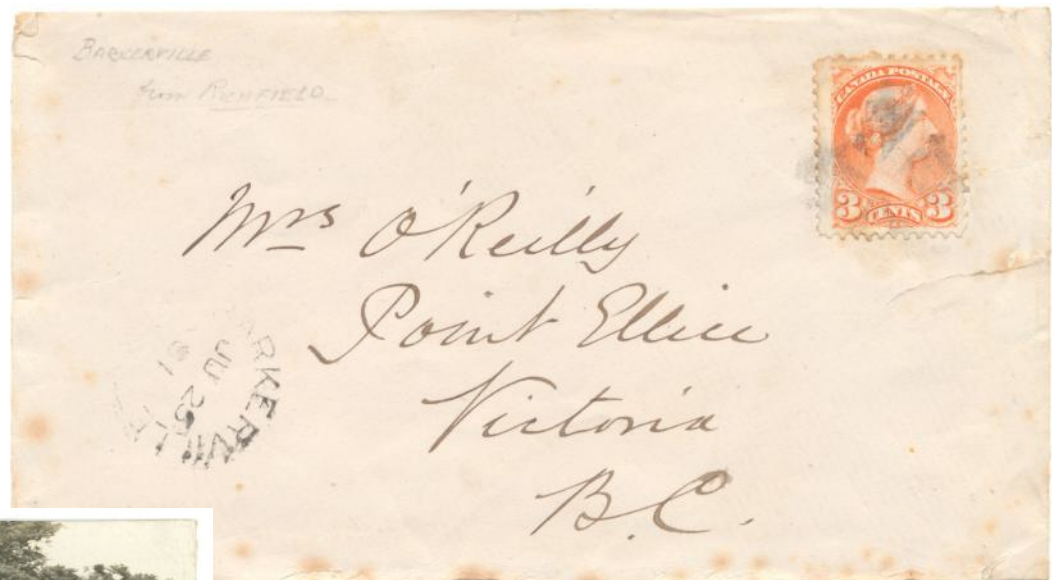 BARKERVILLE
from RICHFIELD
CANADA POSTAGE
3 CENTS 3
Mrs O'Reilly
Point Ellice
Victoria
B.C.
ARKERVILLE
JU 25
81